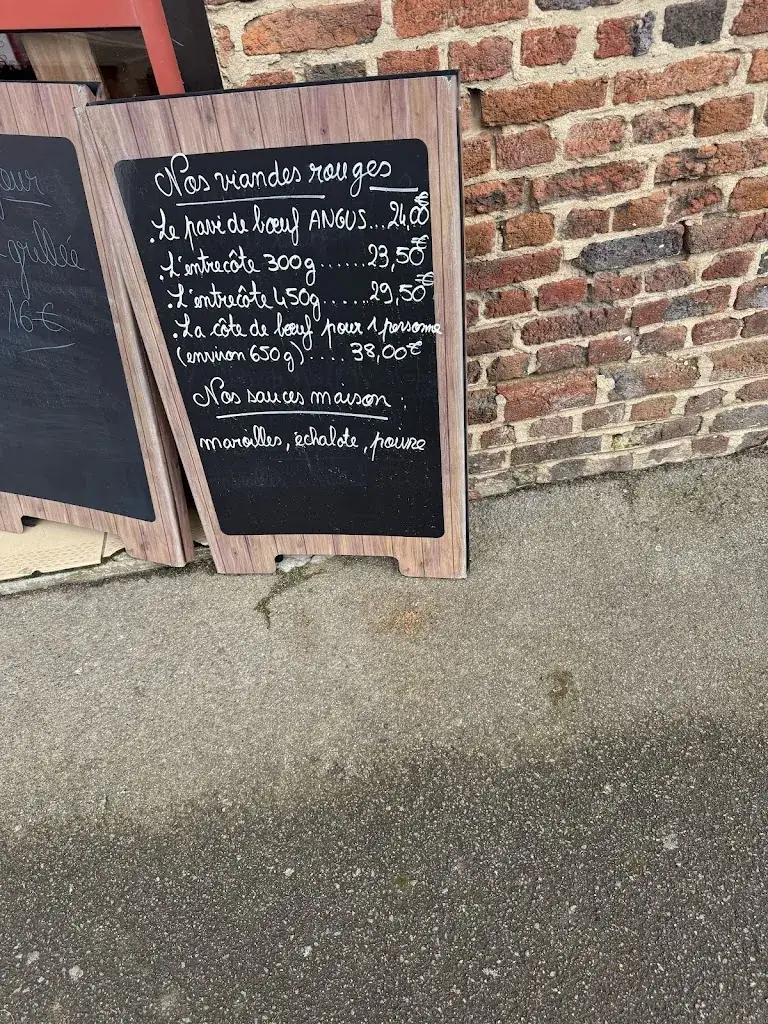 our
grillée
16€
Nos viandes rouges
. Le pavé de bœuf ANGUS...24,00€
. L'entrecôte 300g......23,50€
. L'entrecôte 450g......29,50€
. La côte de bœuf pour 1 personne
(environ 650g).... 38,00€
Nos sauces maison :
maroilles, échalote, poivre